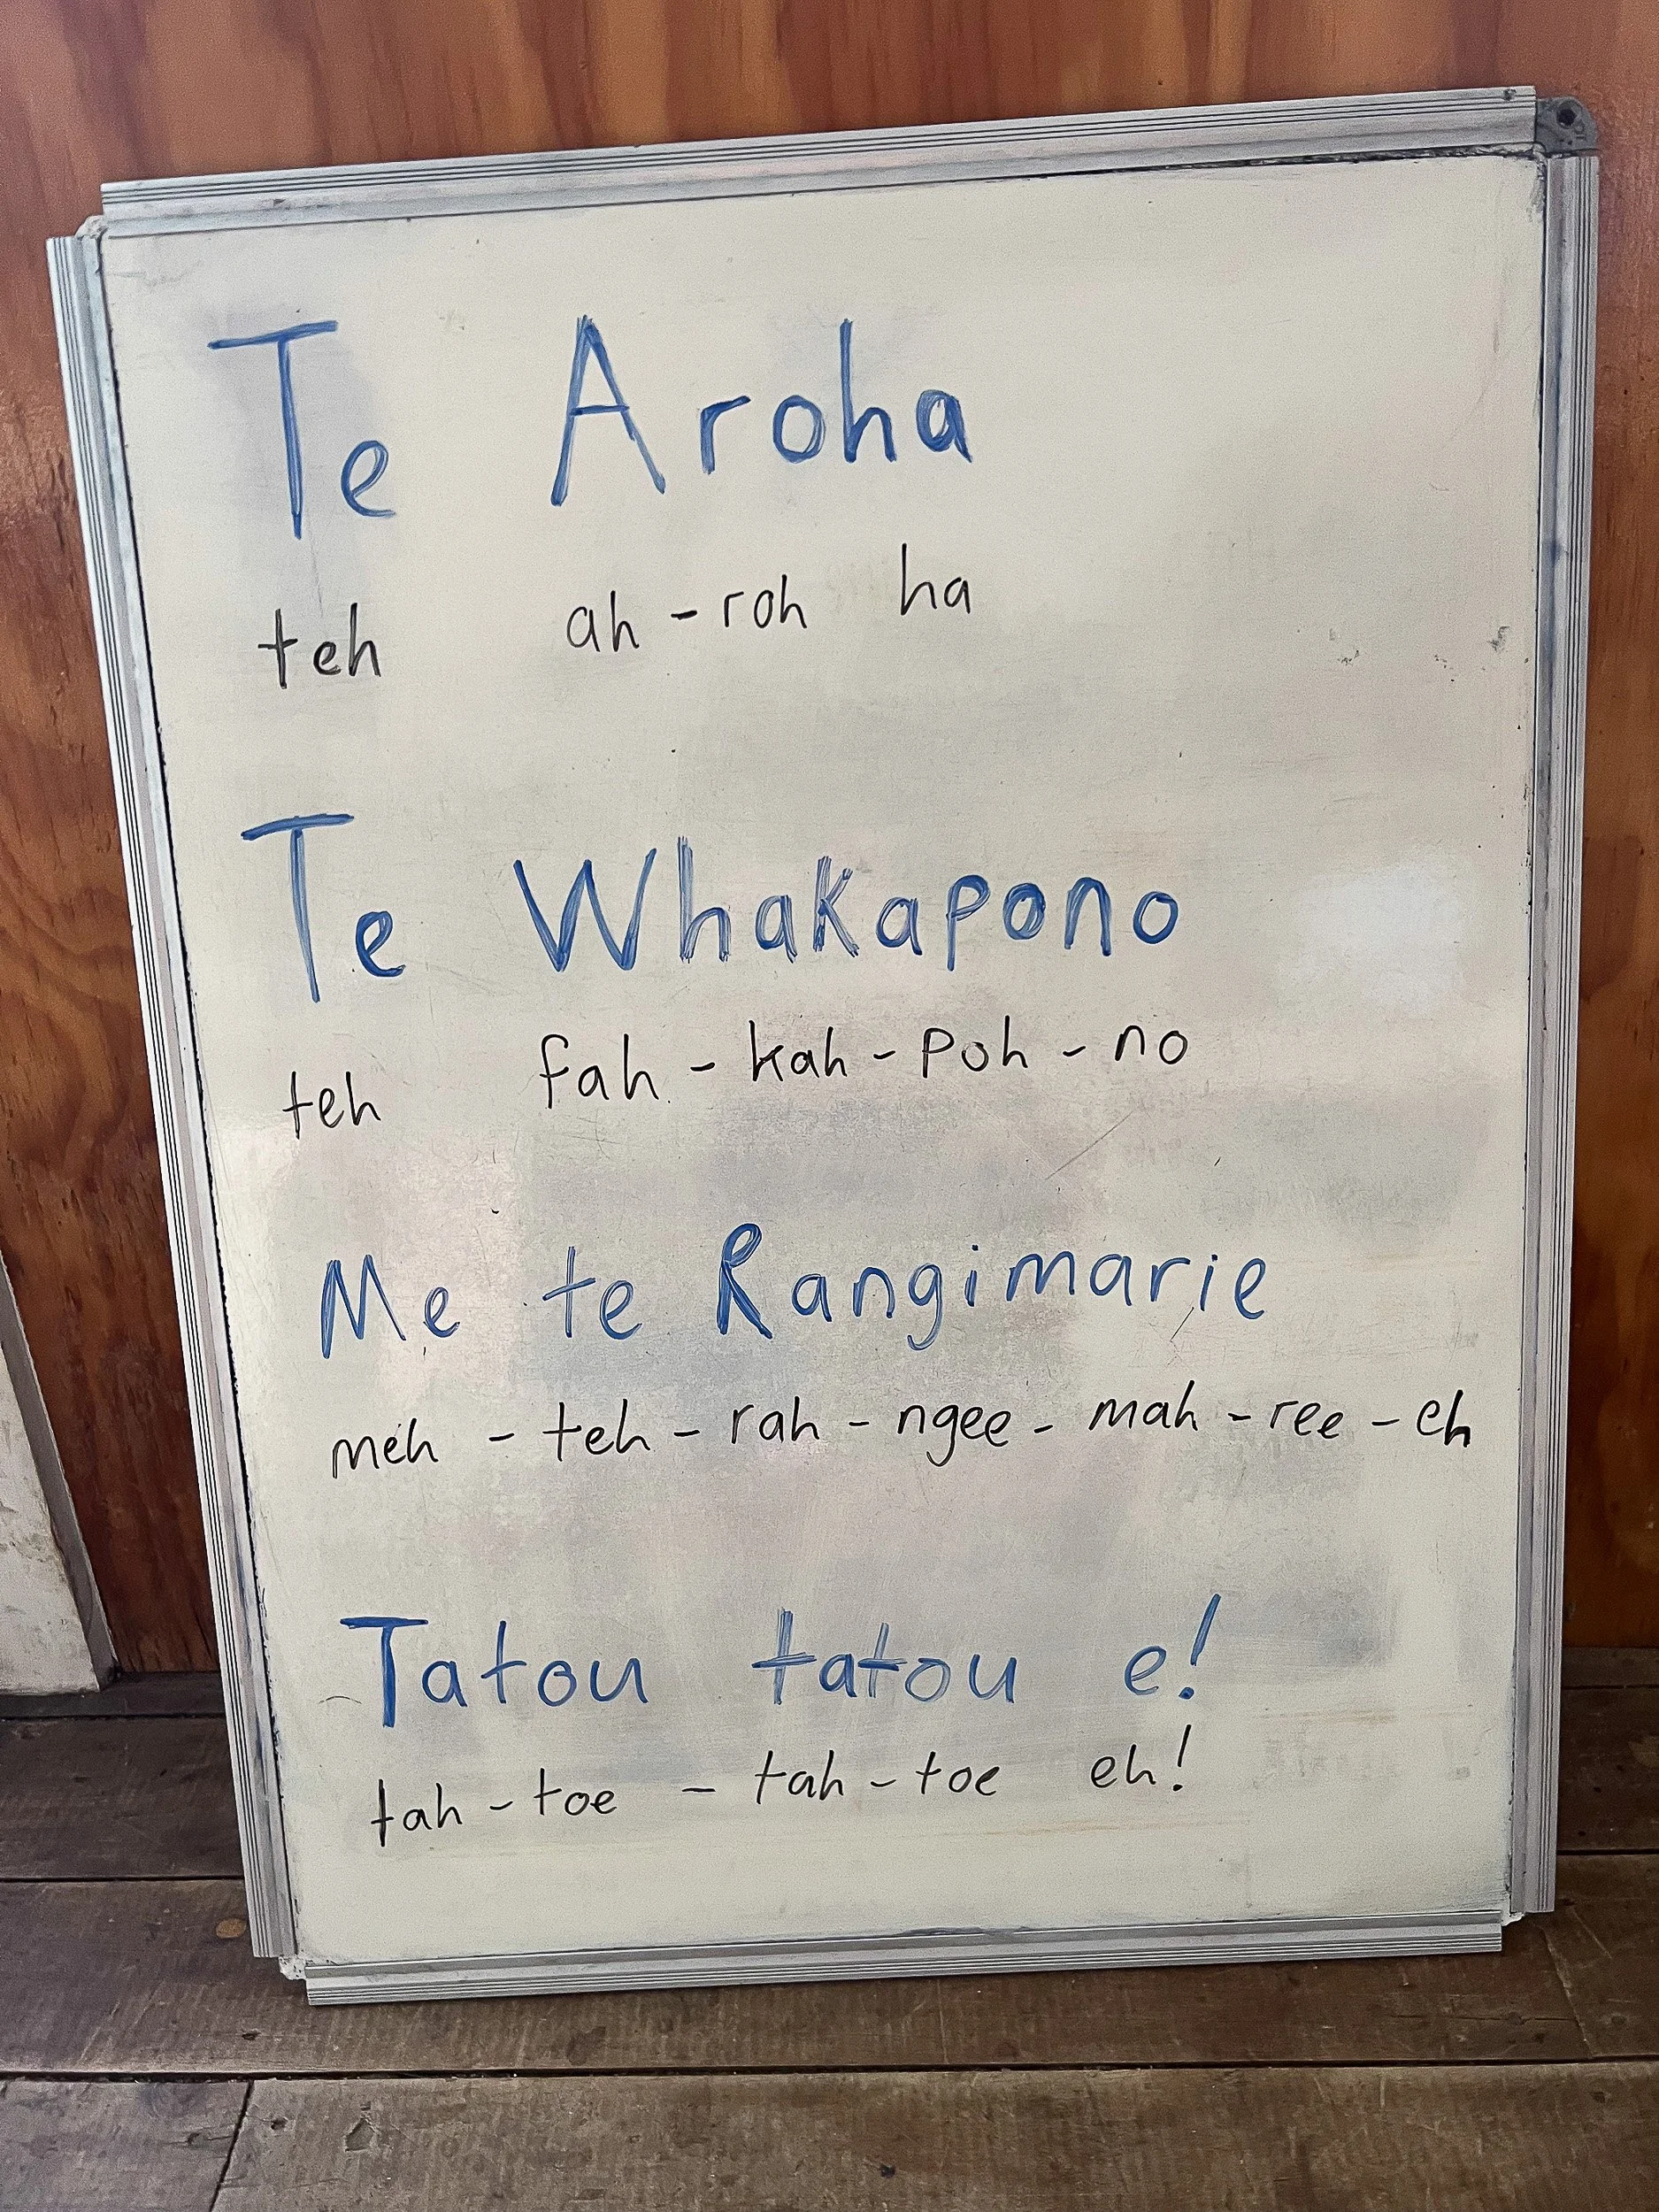 Te Aroha
teh ah - roh ha
Te Whakapono
teh fah - kah - poh - no
Me te Rangimarie
meh - teh - rah - ngee - mah - ree - eh
Tatou tatou e!
tah - toe - tah - toe eh!